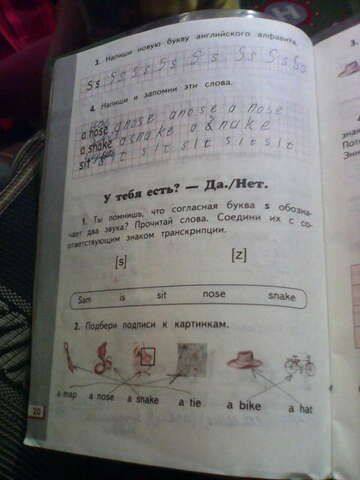 3. Напиши новую букву английского алфавита.
Ss Ss Ss Ss Ss Ss Ss Ss
4. Напиши и запомни эти слова.
a nose a nose a nose a nose
a snake a snake a snake
sit sit sit sit sit sit
У тебя есть? — Да./Нет.
1. Ты помнишь, что согласная буква s обозна-
чает два звука? Прочитай слова. Соедини их с со-
ответствующим знаком транскрипции.
[s] [z]
Sam is sit nose snake
2. Подбери подписи к картинкам.
a map a nose a snake a tie a bike a hat
20
3.